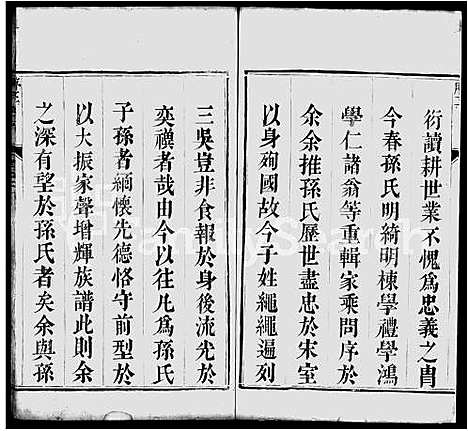 衍讀耕世業不愧爲忠義之胄
今春孫氏明綺明棟學禮學鴻
學仁諸翁等重輯家乘問序於
余余推孫氏歷世盡忠於宋室
以身殉國故今子姓繩繩遍列
三吳豈非食報於身後流光於
奕禩者哉由今以往凡爲孫氏
子孫者緬懷先德恪守前型於
以大振家聲增輝族譜此則余
之深有望於孫氏者矣余與孫
FamilySearch